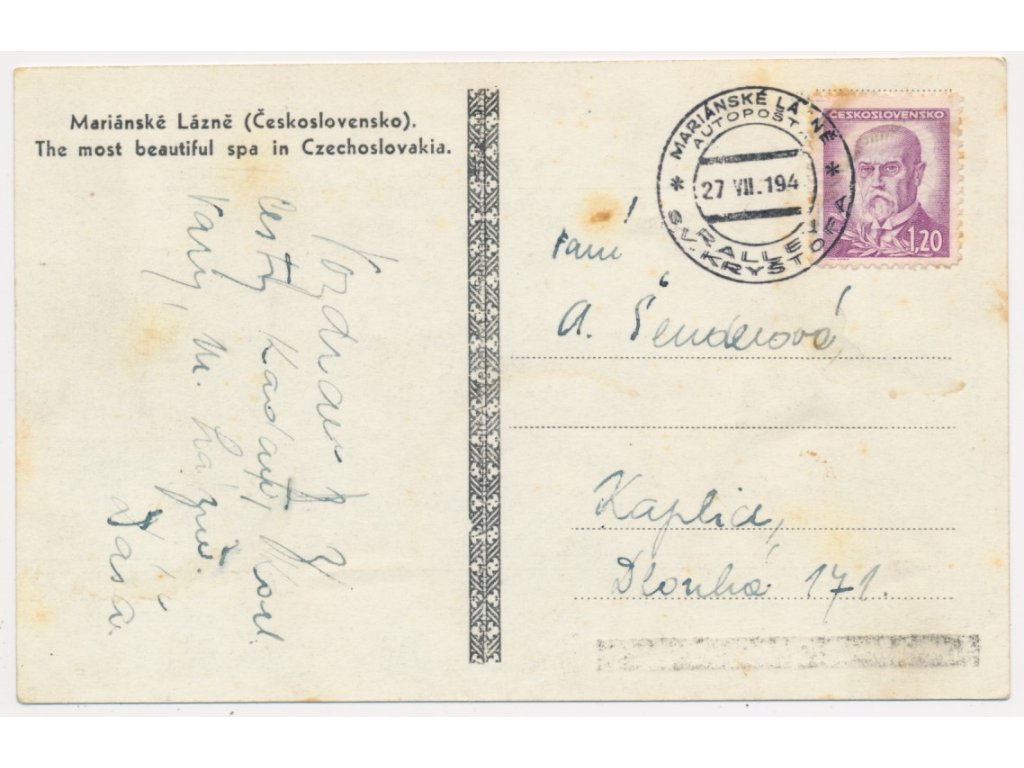 Mariánské Lázně (Československo).
The most beautiful spa in Czechoslovakia.
Pozdrav z
cesty Kadaň, Karl.
Vary, M. Lázně.
Dáša.
* MARIÁNSKÉ LÁZNĚ *
AUTOPOŠTA
27 VII.194
1
RALLE
SV. KRYŠTOFA
ČESKOSLOVENSKO
1,20
Paní
A. Šenderová,
Kaplice,
Dlouhá 171.